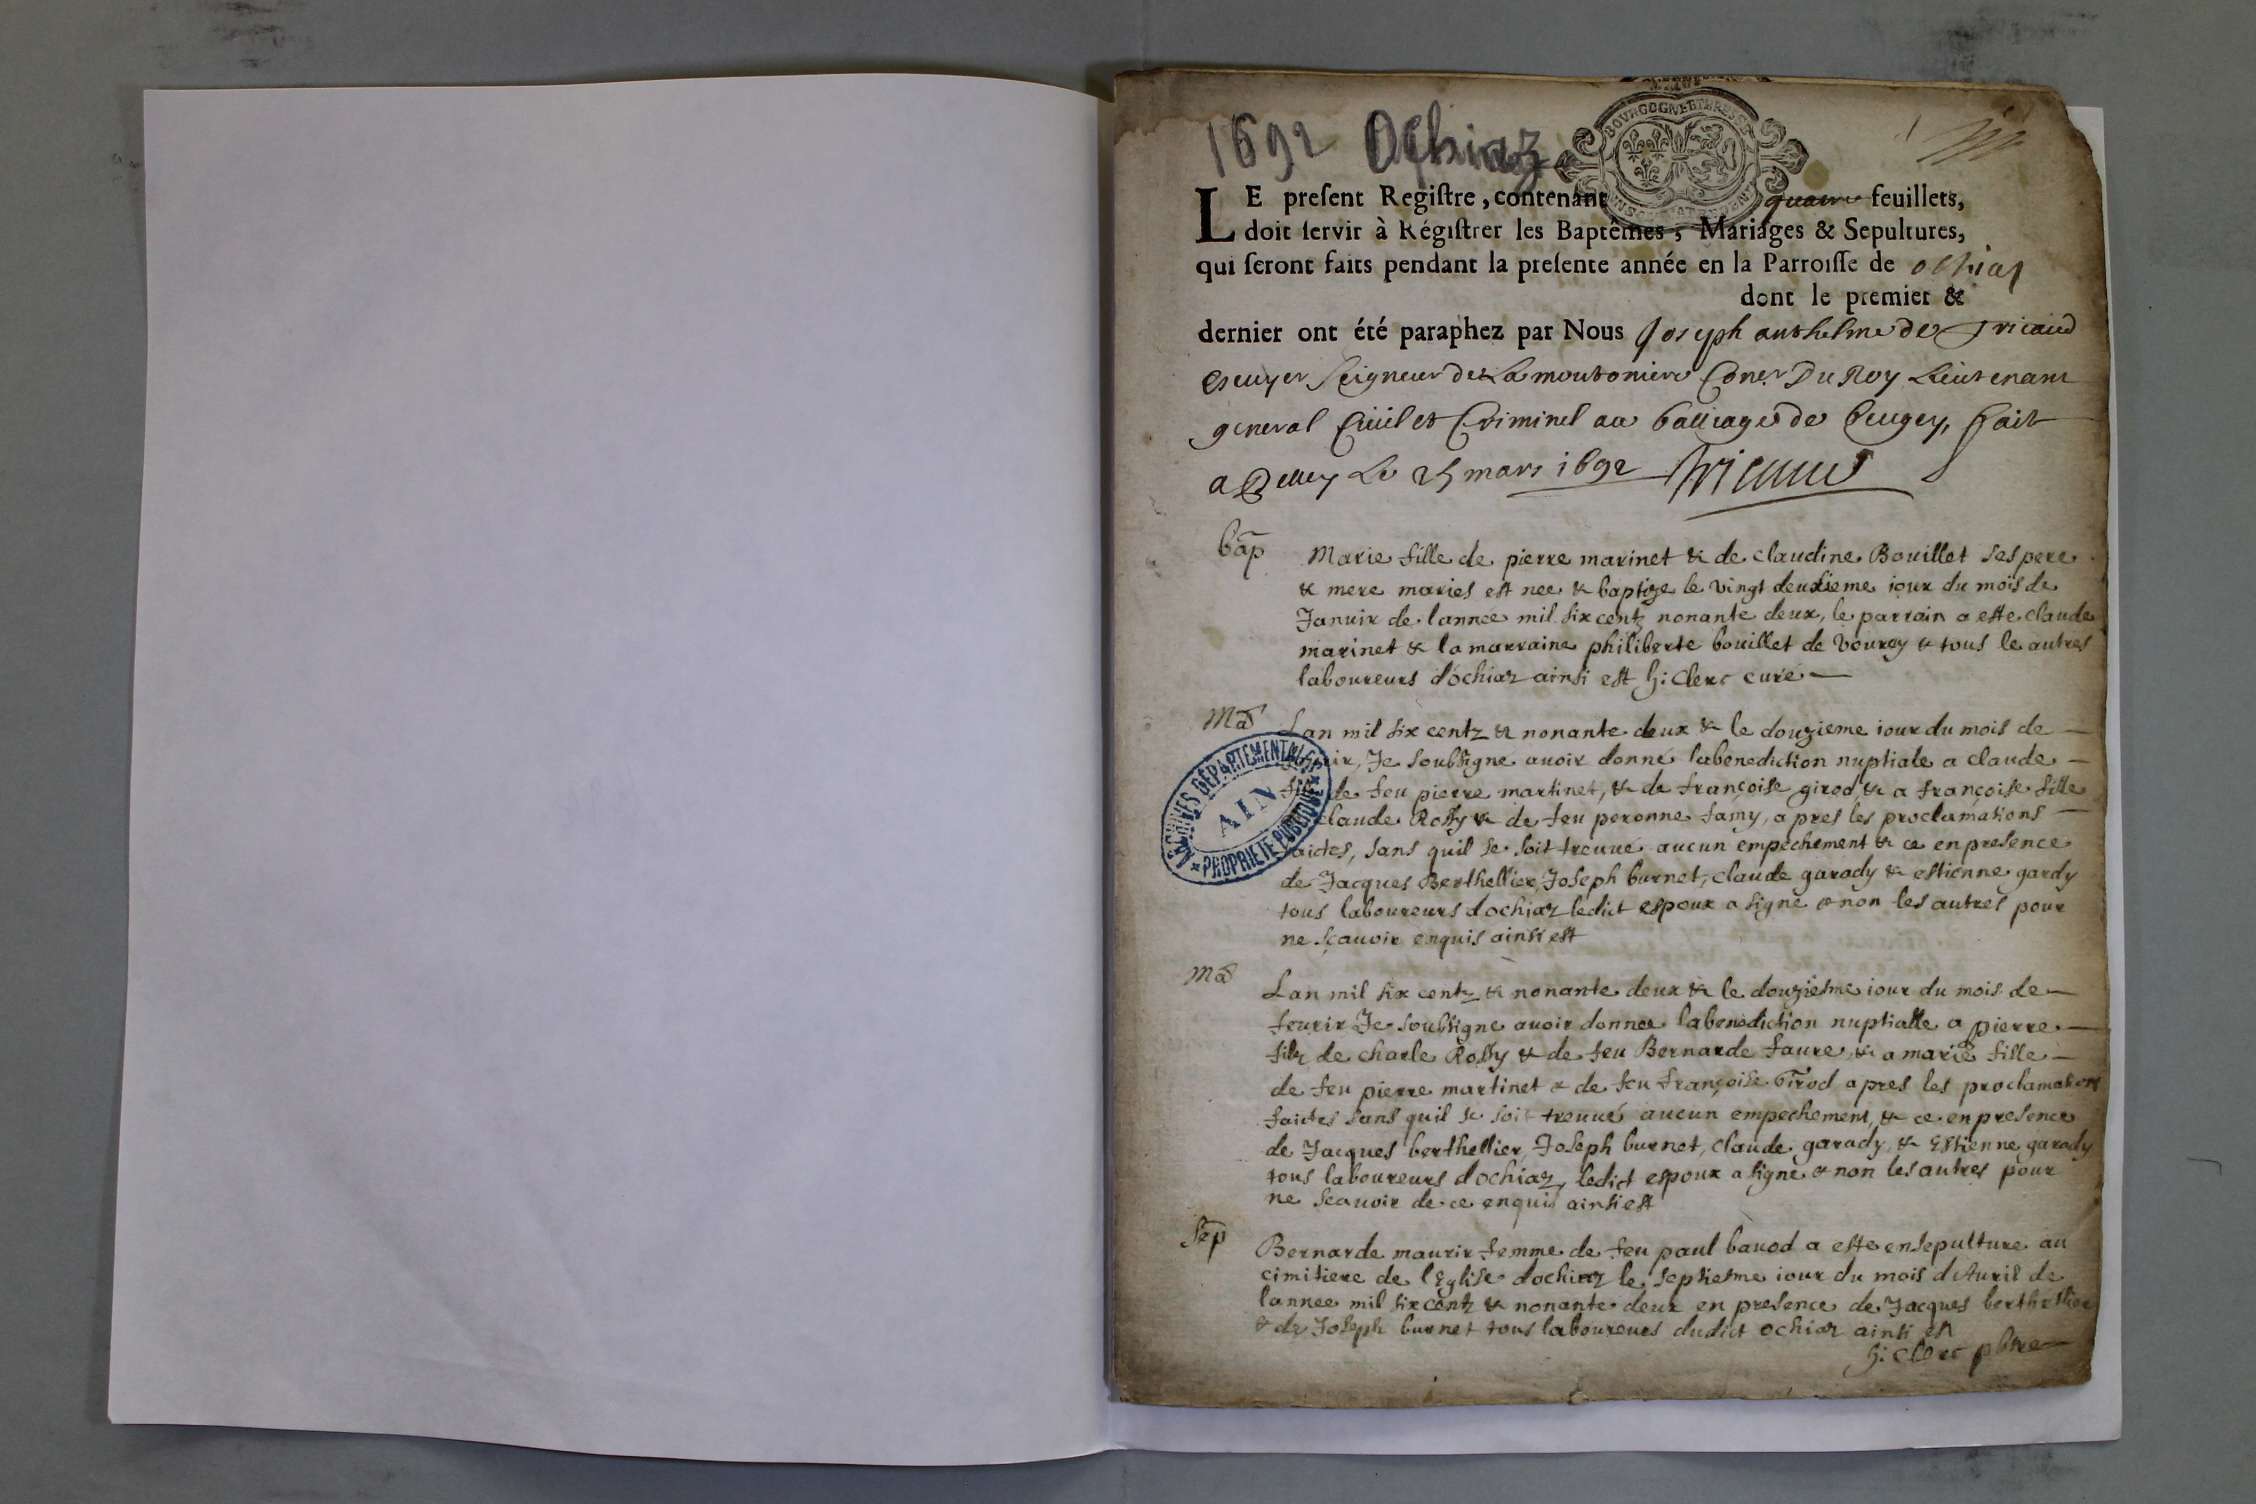 1692 Ochiaz
BOVRGOGNE ET BRESSE
LE present Registre, contenant quatre feuillets,
doit servir à Régistrer les Baptêmes, Mariages & Sepultures,
qui seront faits pendant la presente année en la Parroisse de ochiaz
dont le premier &
dernier ont été paraphez par Nous Joseph anthelme de Tricaud
Escuyer Seigneur de La moutoniere Coner Du Roy Lieutenant
general Ciuil et Criminel au balliage de beugey, fait
a Belley Le 25 mars 1692 Tricaud
bap
Marie fille de pierre marinet & de claudine Bouillet ses pere
& mere maries est nee & baptize le vingt deuxieme iour du mois de
Januir de lannee mil six centz nonante deux, le parrain a este claude
marinet & la marraine philiberte bouillet de vouray & tous le autres
laboureurs dochiaz ainsi est h: Clerc curé
Ma
Lan mil six centz & nonante deux & le douzieme iour du mois de
Je soubsigne auoir donné labenediction nuptiale a claude
de feu pierre martinet, & de françoise girod, & a françoise fille
claude Rossy & de feu peronne famy, apres les proclamations
faictes, sans quil se soit treuué aucun empechement & ce en presence
de Jacques Berthellier, Joseph burnet, claude garady & estienne gardy
tous laboureurs dochiaz ledict espoux a signé & non les autres pour
ne sçauoir enquis ainsi est
ARCHIVES DÉPARTEMENTALES
AIN
PROPRIÉTÉ PUBLIQUE
Ma
Lan mil six centz & nonante deux & le douziesme iour du mois de
feurir Je soubsigne auoir donnee labenediction nuptialle a pierre
filz de charle Rossy & de feu Bernarde faure, & a marie fille
de feu pierre martinet & de feu françoise Girod apres les proclamations
faictes sans quil se soit treuué aucun empechement, & ce en presence
de Jacques berthellier, Joseph burnet, claude garady, & Estienne garady
tous laboureurs dochiaz, ledict espoux a signé & non les autres pour
ne scauoir de ce enquis ainsi est
Sep
Bernarde maurir femme de feu paul bauod a este ensepulture au
cimitiere de l'Eglise dochiaz le septiesme iour du mois d'Auril de
lannee mil six centz & nonante deux en presence de Jacques berthellier
& de Joseph burnet tous laboureurs dudict ochiaz ainsi est
h: Clerc pbtre